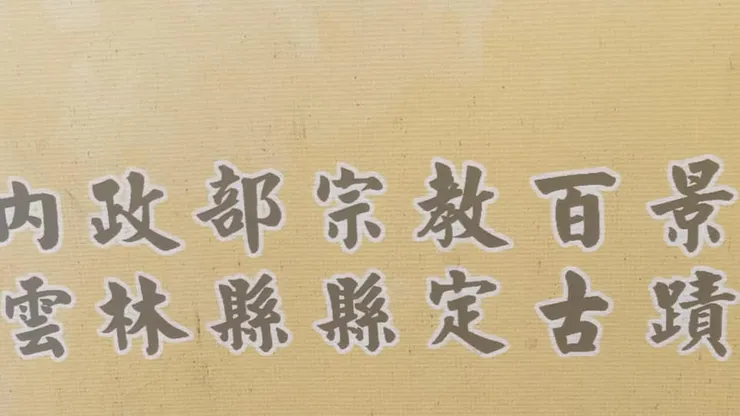 內政部宗教百景
雲林縣縣定古蹟